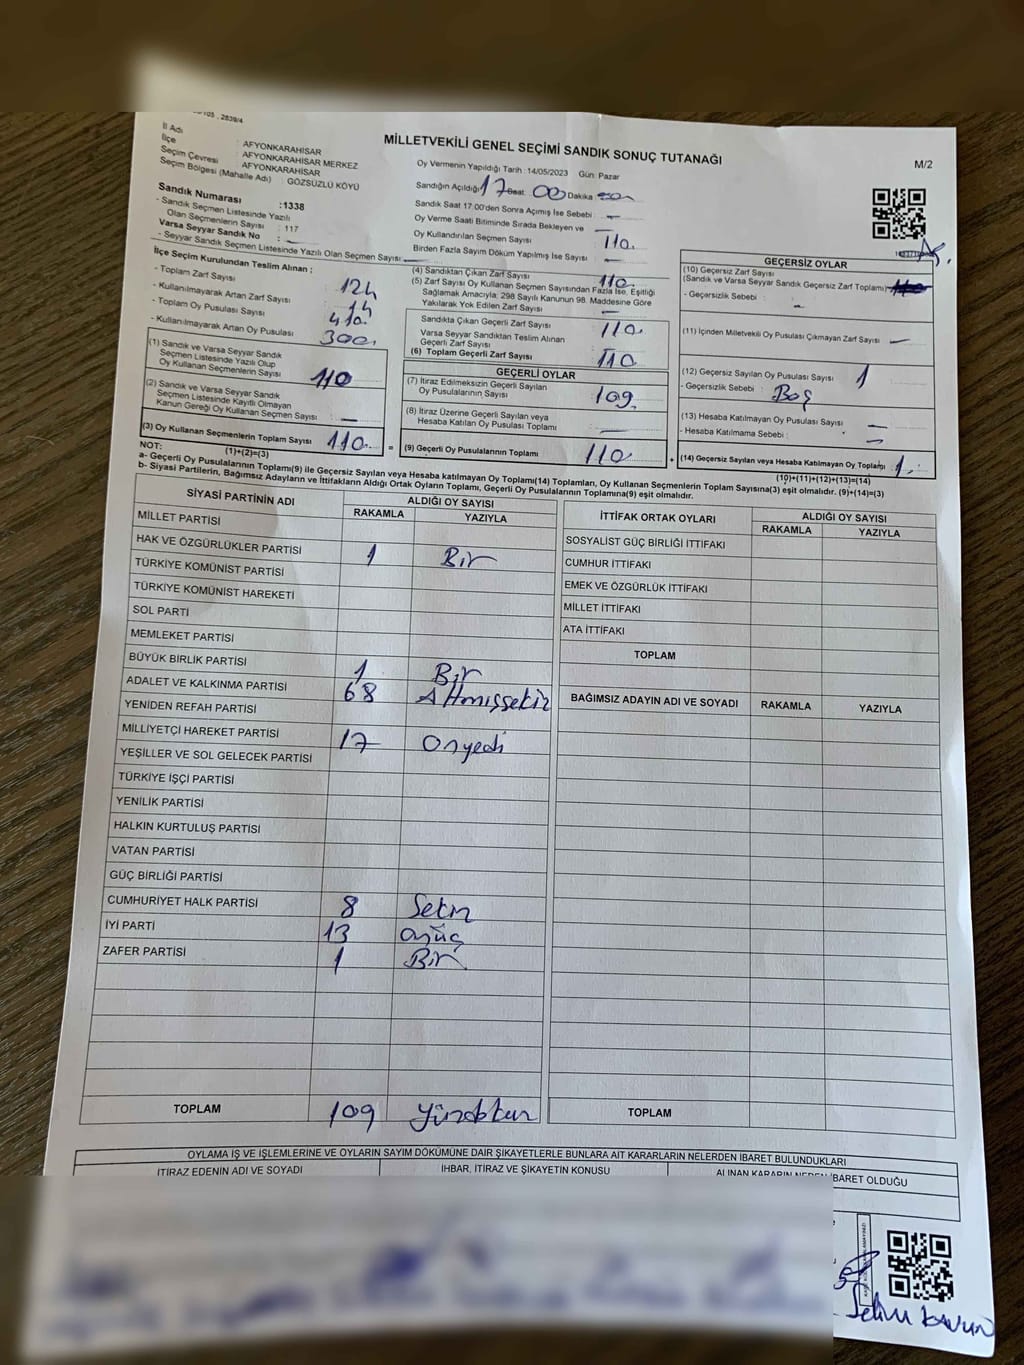 MİLLETVEKİLİ GENEL SEÇİMİ SANDIK SONUÇ TUTANAĞI
M/2
İl Adı : AFYONKARAHİSAR
İlçe : AFYONKARAHİSAR MERKEZ
Seçim Çevresi : AFYONKARAHİSAR
Seçim Bölgesi (Mahalle Adı) : GÖZSÜZLÜ KÖYÜ
Oy Vermenin Yapıldığı Tarih : 14/05/2023 Gün: Pazar
Sandığın Açıldığı 17 Saat 00 Dakika
Sandık Saat 17:00'den Sonra Açılmış İse Sebebi : -
Oy Verme Saati Bitiminde Sırada Bekleyen ve
Oy Kullandırılan Seçmen Sayısı 110.
Birden Fazla Sayım Döküm Yapılmış İse Sayısı : -
Sandık Numarası :1338
- Sandık Seçmen Listesinde Yazılı
Olan Seçmenlerin Sayısı : 117
Varsa Seyyar Sandık No : -
- Seyyar Sandık Seçmen Listesinde Yazılı Olan Seçmen Sayısı
İlçe Seçim Kurulundan Teslim Alınan :
- Toplam Zarf Sayısı : 124
- Kullanılmayarak Artan Zarf Sayısı : 14
- Toplam Oy Pusulası Sayısı : 410.
- Kullanılmayarak Artan Oy Pusulası 300.
(1) Sandık ve Varsa Seyyar Sandık
Seçmen Listesinde Yazılı Olup
Oy Kullanan Seçmenlerin Sayısı 110
(2) Sandık ve Varsa Seyyar Sandık
Seçmen Listesinde Kayıtlı Olmayan
Kanun Gereği Oy Kullanan Seçmen Sayısı : -
(3) Oy Kullanan Seçmenlerin Toplam Sayısı 110.
(1)+(2)=(3)
(4) Sandıktan Çıkan Zarf Sayısı 110.
(5) Zarf Sayısı Oy Kullanan Seçmen Sayısından Fazla İse, Eşitliği
Sağlamak Amacıyla; 298 Sayılı Kanunun 98. Maddesine Göre
Yakılarak Yok Edilen Zarf Sayısı : -
Sandıkta Çıkan Geçerli Zarf Sayısı 110.
Varsa Seyyar Sandıktan Teslim Alınan
Geçerli Zarf Sayısı : -
(6) Toplam Geçerli Zarf Sayısı 110
GEÇERLİ OYLAR
(7) İtiraz Edilmeksizin Geçerli Sayılan
Oy Pusulalarının Sayısı : 109.
(8) İtiraz Üzerine Geçerli Sayılan veya
Hesaba Katılan Oy Pusulası Toplamı : -
= (9) Geçerli Oy Pusulalarının Toplamı 110
GEÇERSİZ OYLAR
(10) Geçersiz Zarf Sayısı
(Sandık ve Varsa Seyyar Sandık Geçersiz Zarf Toplamı)
- Geçersizlik Sebebi : -
(11) İçinden Milletvekili Oy Pusulası Çıkmayan Zarf Sayısı -
(12) Geçersiz Sayılan Oy Pusulası Sayısı : 1
- Geçersizlik Sebebi : Boş
(13) Hesaba Katılmayan Oy Pusulası Sayısı : -
- Hesaba Katılmama Sebebi : -
+ (14) Geçersiz Sayılan veya Hesaba Katılmayan Oy Toplamı 1.
(10)+(11)+(12)+(13)=(14)
NOT:
a- Geçerli Oy Pusulalarının Toplamı(9) ile Geçersiz Sayılan veya Hesaba katılmayan Oy Toplamı(14) Toplamları, Oy Kullanan Seçmenlerin Toplam Sayısına(3) eşit olmalıdır. (9)+(14)=(3)
b- Siyasi Partilerin, Bağımsız Adayların ve İttifakların Aldığı Ortak Oyların Toplamı, Geçerli Oy Pusulalarının Toplamına(9) eşit olmalıdır.
SİYASİ PARTİNİN ADI ALDIĞI OY SAYISI
RAKAMLA YAZIYLA
MİLLET PARTİSİ
HAK VE ÖZGÜRLÜKLER PARTİSİ 1 Bir
TÜRKİYE KOMÜNİST PARTİSİ
TÜRKİYE KOMÜNİST HAREKETİ
SOL PARTİ
MEMLEKET PARTİSİ
BÜYÜK BİRLİK PARTİSİ 1 Bir
ADALET VE KALKINMA PARTİSİ 68 Altmışsekiz
YENİDEN REFAH PARTİSİ
MİLLİYETÇİ HAREKET PARTİSİ 17 Onyedi
YEŞİLLER VE SOL GELECEK PARTİSİ
TÜRKİYE İŞÇİ PARTİSİ
YENİLİK PARTİSİ
HALKIN KURTULUŞ PARTİSİ
VATAN PARTİSİ
GÜÇ BİRLİĞİ PARTİSİ
CUMHURİYET HALK PARTİSİ 8 Sekiz
İYİ PARTİ 13 onüç
ZAFER PARTİSİ 1 Bir
TOPLAM 109 Yüzdokuz
İTTİFAK ORTAK OYLARI ALDIĞI OY SAYISI
RAKAMLA YAZIYLA
SOSYALİST GÜÇ BİRLİĞİ İTTİFAKI
CUMHUR İTTİFAKI
EMEK VE ÖZGÜRLÜK İTTİFAKI
MİLLET İTTİFAKI
ATA İTTİFAKI
TOPLAM
BAĞIMSIZ ADAYIN ADI VE SOYADI RAKAMLA YAZIYLA
TOPLAM
OYLAMA İŞ VE İŞLEMLERİNE VE OYLARIN SAYIM DÖKÜMÜNE DAİR ŞİKAYETLERLE BUNLARA AİT KARARLARIN NELERDEN İBARET BULUNDUKLARI
İTİRAZ EDENİN ADI VE SOYADI İHBAR, İTİRAZ VE ŞİKAYETİN KONUSU ALINAN KARARIN NEDEN İBARET OLDUĞU
Selim